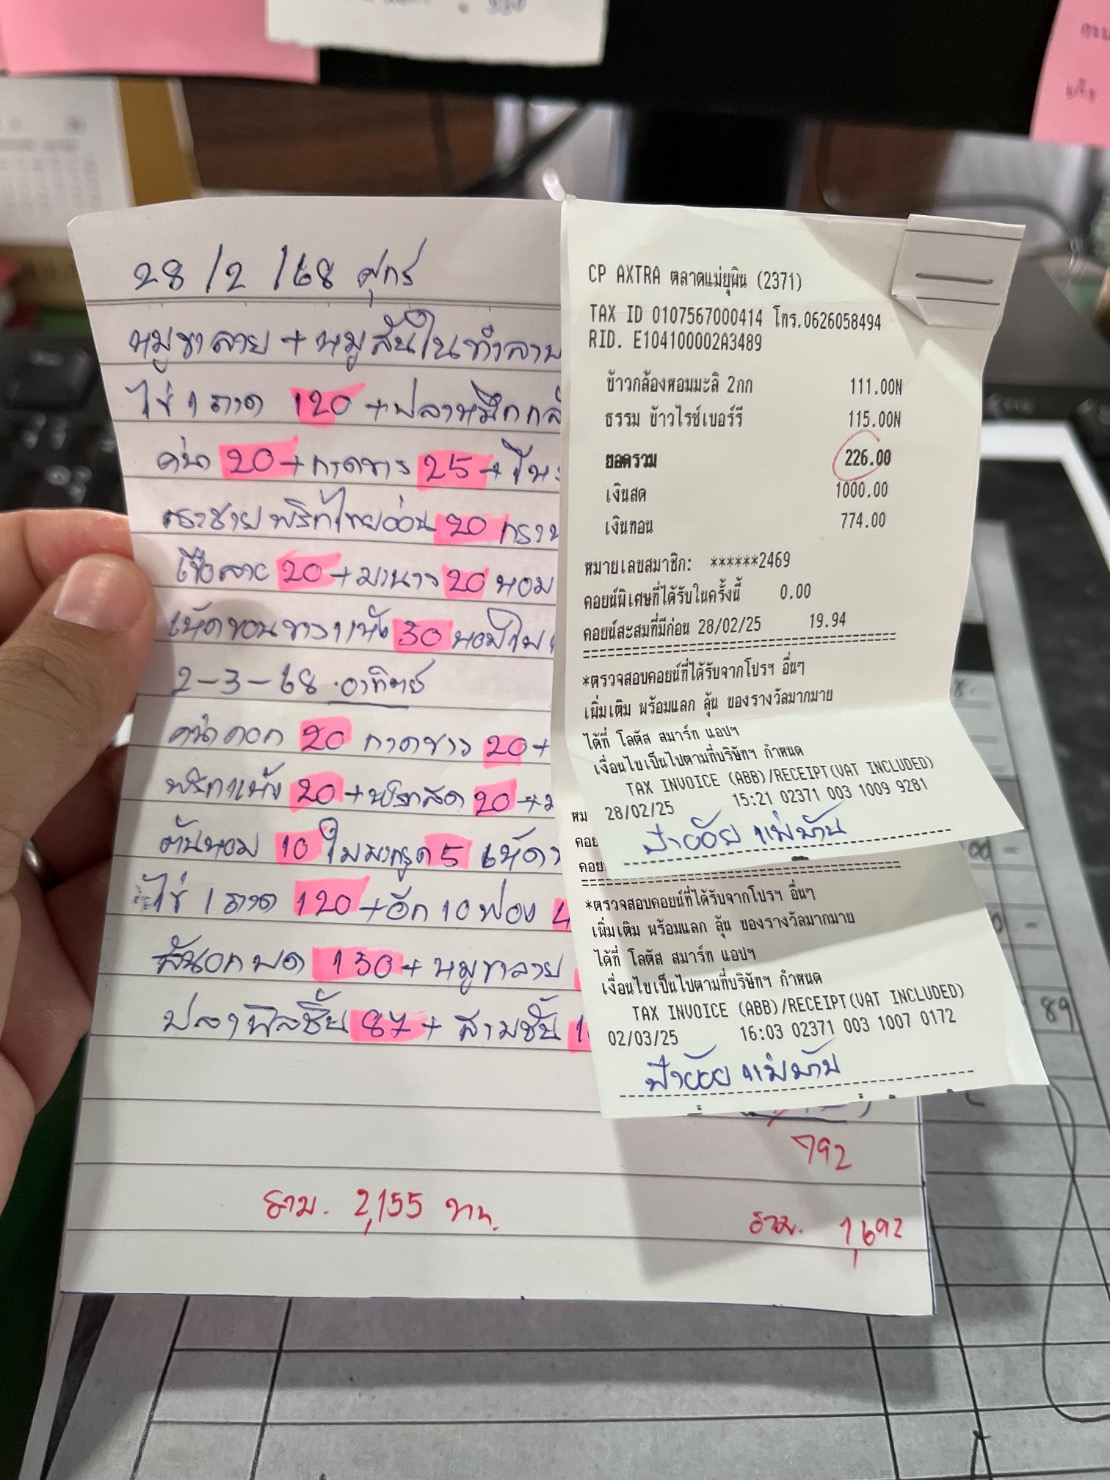 28/2/68 ศุกร์
หมูขาลาย + หมูสันในทำลาบ
ไข่ 1 ถาด 120 + ปลาหมึกกล้
คะน้า 20 + กาดขาว 25 +
กระชายพริกไทยอ่อน 20 กราน
20 + มะนาว 20 หอม
30
2-3-68 อาทิตย์
คะน้าดอก 20 กาดขาว 20 +
พริกแห้ง 20 + พริกสด 20 +
ต้นหอม 10 ใบมะกรูด 5 เห็ด
ไข่ 1 ถาด 120 + อีก 10 ฟอง 4
สันอกบด 130 + หมูขาลาย
ปลาฟิลชิ้น 87 + สามชั้น 1
792
รวม. 2,155 บาท.
รวม. 1,692
CP AXTRA ตลาดแม่ยุพิน (2371)
TAX ID 0107567000414 โทร.0626058494
RID. E104100002A3489
ข้าวกล้องหอมมะลิ 2กก 111.00N
ธรรม ข้าวไรซ์เบอร์รี 115.00N
ยอดรวม 226.00
เงินสด 1000.00
เงินทอน 774.00
หมายเลขสมาชิก: ******2469
คอยน์พิเศษที่ได้รับในครั้งนี้ 0.00
คอยน์สะสมที่มีก่อน 28/02/25 19.94
*ตรวจสอบคอยน์ที่ได้รับจากโปรฯ อื่นๆ
เพิ่มเติม พร้อมแลก ลุ้น ของรางวัลมากมาย
ได้ที่ โลตัส สมาร์ท แอปฯ
เงื่อนไขเป็นไปตามที่บริษัทฯ กำหนด
TAX INVOICE (ABB)/RECEIPT(VAT INCLUDED)
28/02/25 15:21 02371 003 1009 9281
ป้าอ้อย แม่บ้าน
หม
คอย
คอย
*ตรวจสอบคอยน์ที่ได้รับจากโปรฯ อื่นๆ
เพิ่มเติม พร้อมแลก ลุ้น ของรางวัลมากมาย
ได้ที่ โลตัส สมาร์ท แอปฯ
เงื่อนไขเป็นไปตามที่บริษัทฯ กำหนด
TAX INVOICE (ABB)/RECEIPT(VAT INCLUDED)
02/03/25 16:03 02371 003 1007 0172
ป้าอ้อย แม่บ้าน
89